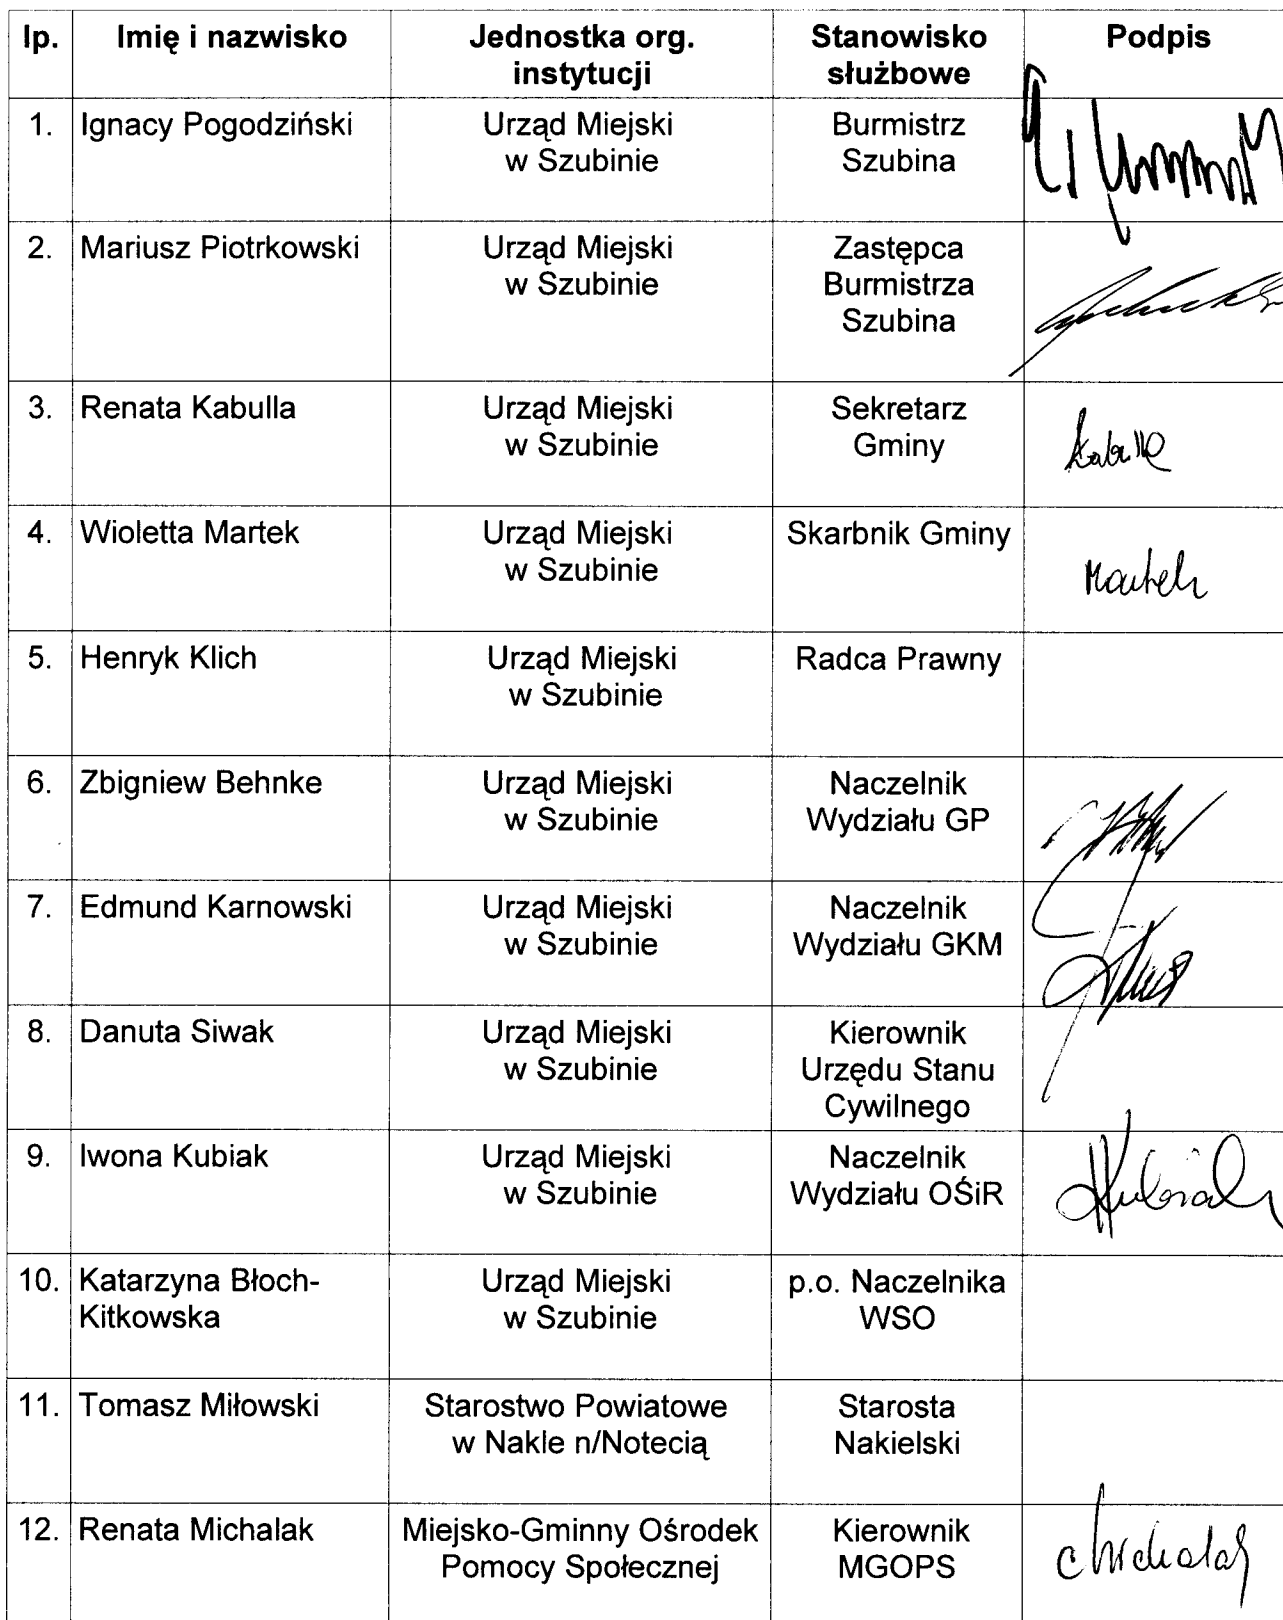 lp. Imię i nazwisko Jednostka org. instytucji Stanowisko służbowe Podpis
1. Ignacy Pogodziński Urząd Miejski w Szubinie Burmistrz Szubina
2. Mariusz Piotrkowski Urząd Miejski w Szubinie Zastępca Burmistrza Szubina
3. Renata Kabulla Urząd Miejski w Szubinie Sekretarz Gminy Kabulla
4. Wioletta Martek Urząd Miejski w Szubinie Skarbnik Gminy Martek
5. Henryk Klich Urząd Miejski w Szubinie Radca Prawny
6. Zbigniew Behnke Urząd Miejski w Szubinie Naczelnik Wydziału GP
7. Edmund Karnowski Urząd Miejski w Szubinie Naczelnik Wydziału GKM
8. Danuta Siwak Urząd Miejski w Szubinie Kierownik Urzędu Stanu Cywilnego
9. Iwona Kubiak Urząd Miejski w Szubinie Naczelnik Wydziału OŚiR Kubiak
10. Katarzyna Błoch-Kitkowska Urząd Miejski w Szubinie p.o. Naczelnika WSO
11. Tomasz Miłowski Starostwo Powiatowe w Nakle n/Notecią Starosta Nakielski
12. Renata Michalak Miejsko-Gminny Ośrodek Pomocy Społecznej Kierownik MGOPS Michalak